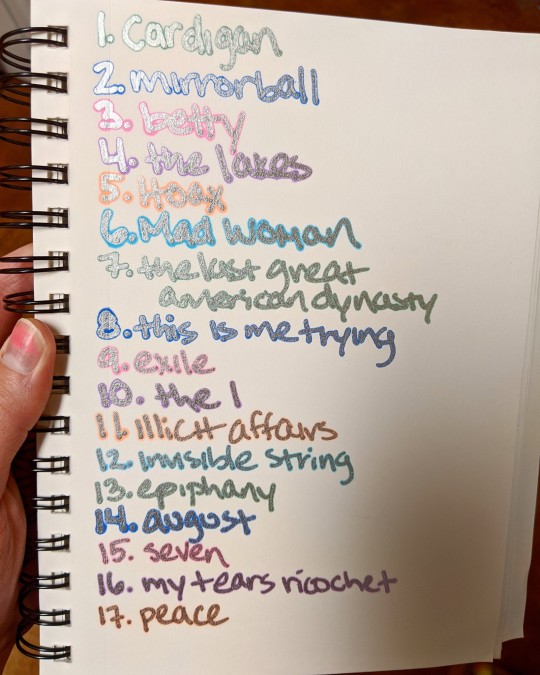 1. Cardigan
2. mirrorball
3. betty
4. the lakes
5. Hoax
6. Mad Woman
7. the last great
american dynasty
8. this is me trying
9. exile
10. the 1
11. illicit affairs
12. invisible string
13. epiphany
14. august
15. seven
16. my tears ricochet
17. peace